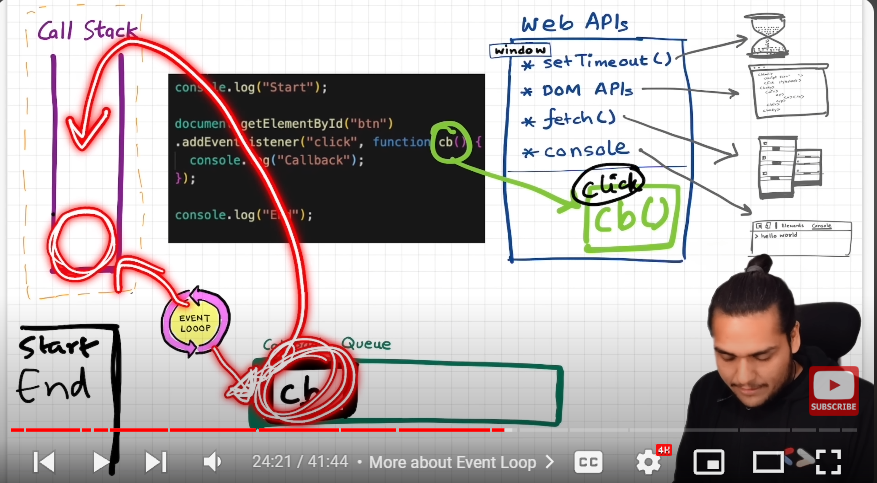 Call Stack
console.log("Start");
document.getElementById("btn")
.addEventListener("click", function cb() {
console.log("Callback");
});
console.log("End");
Web APIs
window
* setTimeout()
* DOM APIs
* fetch()
* console
click
cb()
Elements Console
> hello world
EVENT
LOOOP
Start
End
Queue
cb
SUBSCRIBE
24:21 / 41:44 • More about Event Loop >
CC
4K